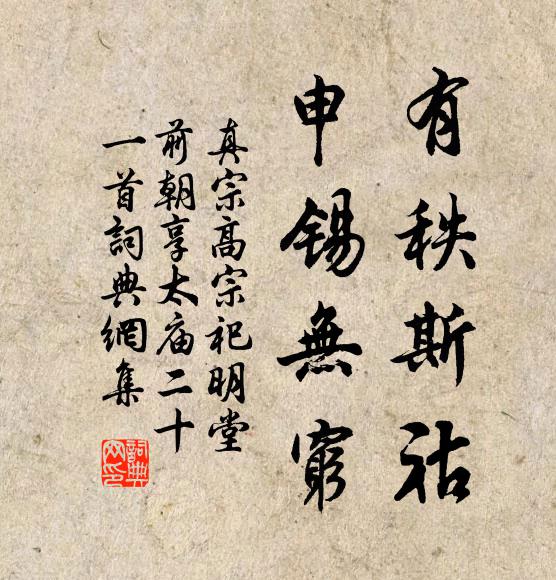 有秩斯祜
申錫無窮
真宗高宗祀明堂
前朝享太庙二十
一首詞典網集
詞典網印